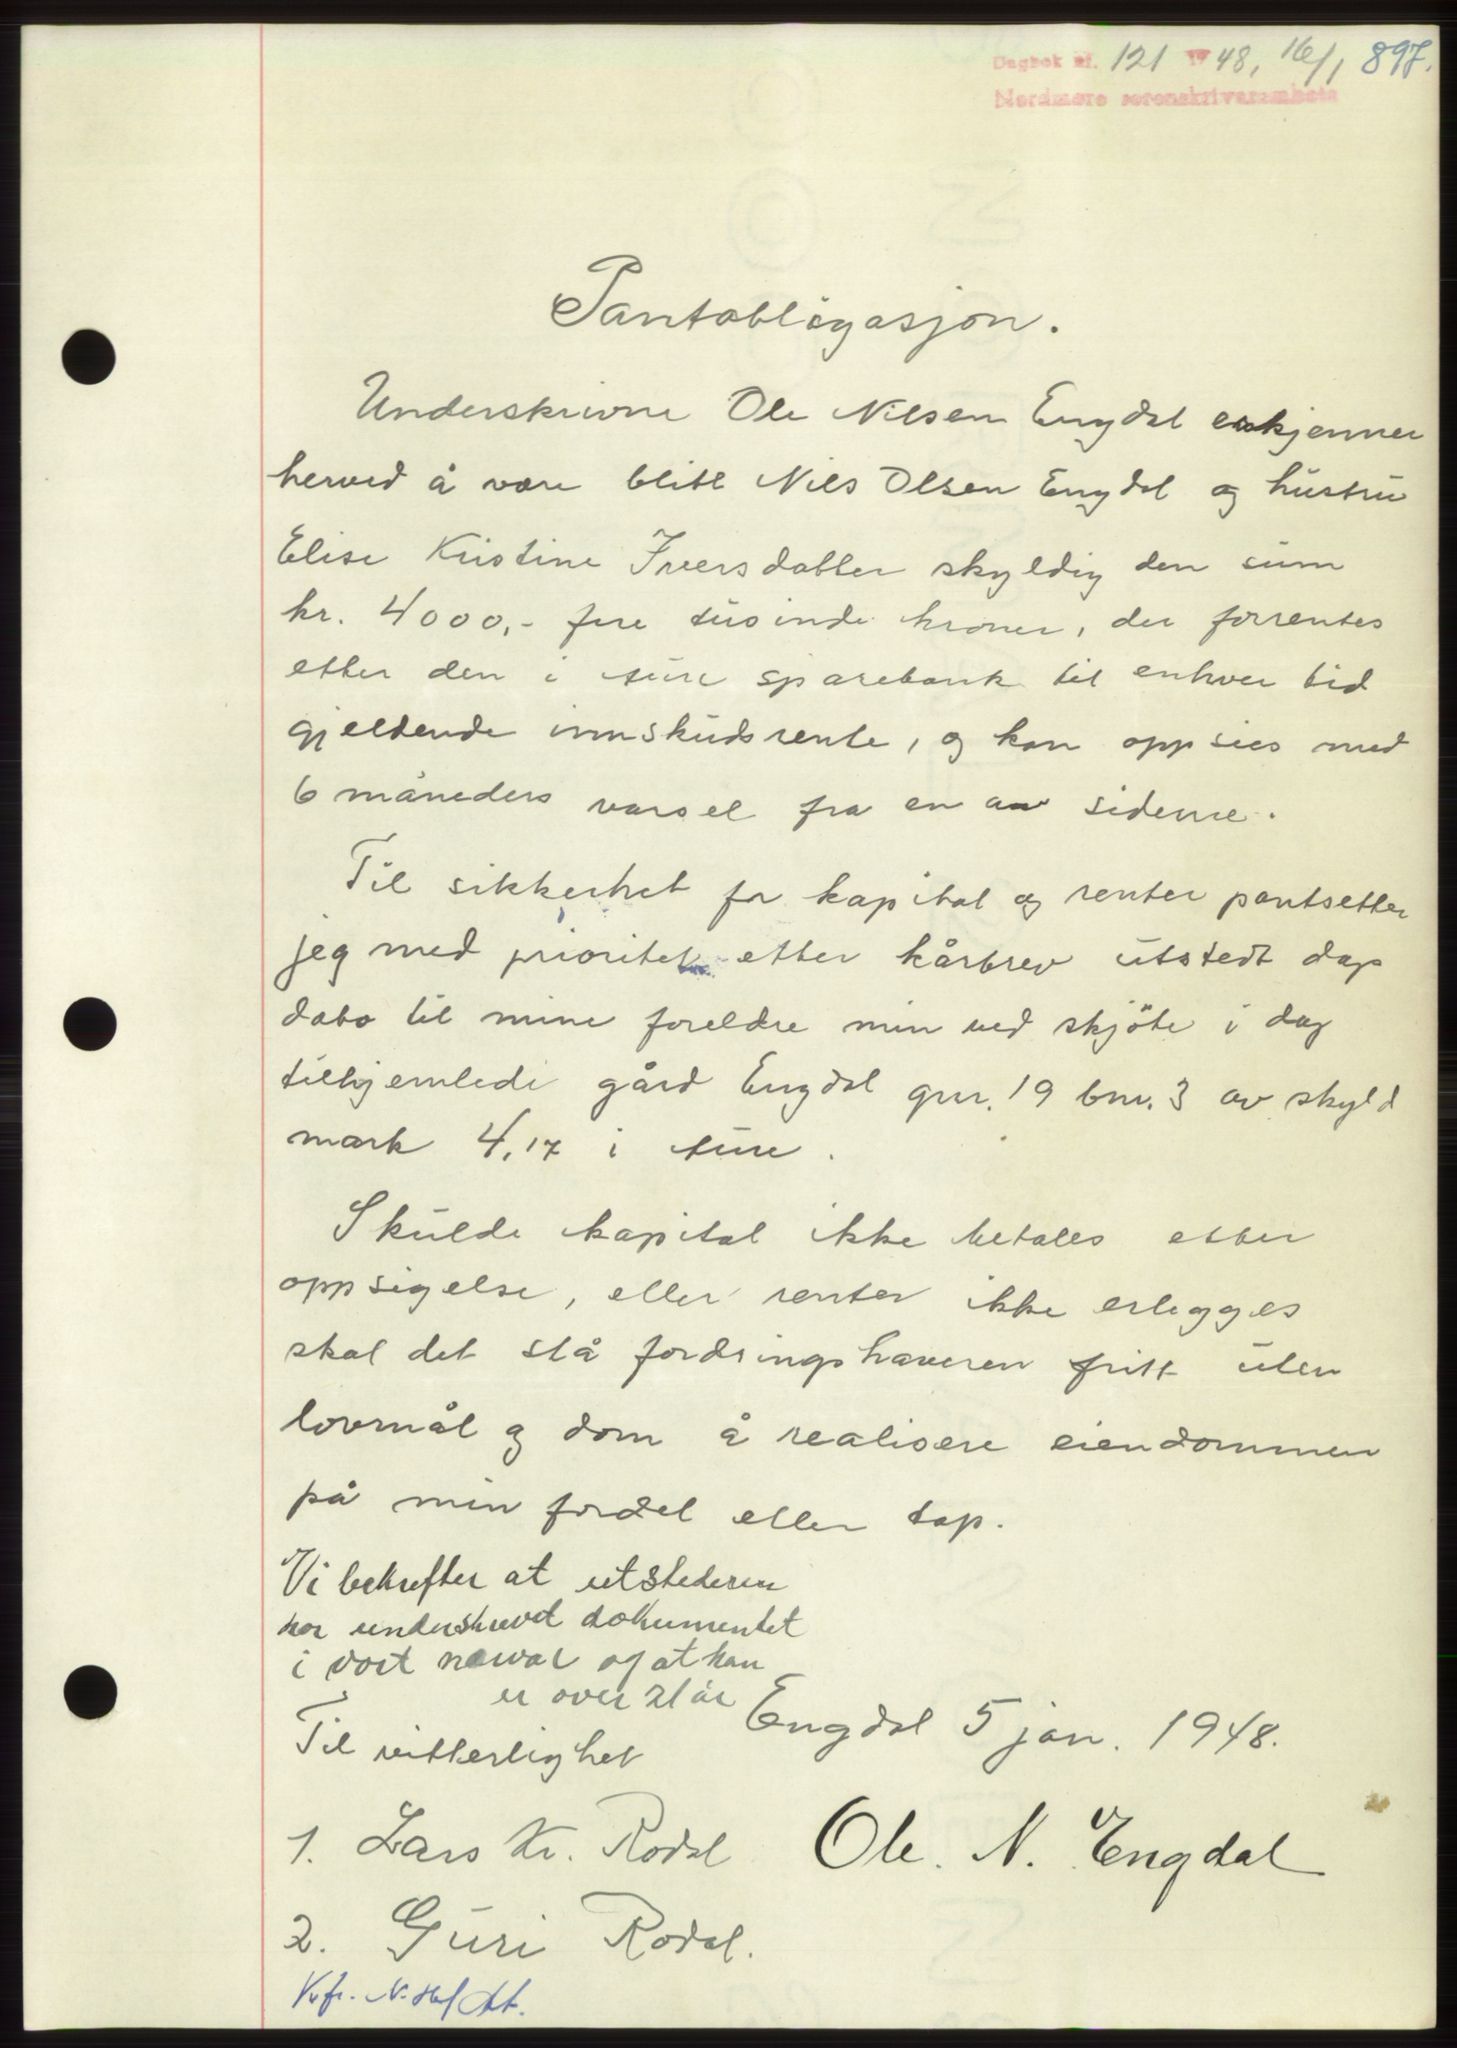 Dagbok nr. 121 1948, 16/1 897.
Nordmøre sorenskrivarembete
Pantobligasjon.
Underskrivne Ole Nilsen Engdal erkjenner
herved å være blitt Nils Olsen Engdal og hustru
Elise Kristine Iversdatter skyldig den sum
kr. 4000,- fire tusinde kroner, der forrentes
etter den i Aure sparebank til enhver tid
gjeldende innskudsrente, og kan oppsies med
6 måneders varsel fra en av sidene.
Til sikkerhet for kapital og renter pantsetter
jeg med prioritet etter kårbrev utstedt dags
dato til mine foreldre min ved skjöte i dag
tilhjemlede gård Engdal gnr. 19 bnr. 3 av skyld
mark 4,17 i Aure.
Skulde kapital ikke betales etter
oppsigelse, eller renter ikke erlegges
skal det stå fordringshaveren fritt uten
lovmål og dom å realisere eiendommen
på min fordel eller tap.
Vi bekrefter at utstederen
har underskrevet dokumentet
i vort nærvær og at han
er over 21 år
Engdal 5 jan. 1948.
Til vitterlighet
1. Lars Kr. Rodal
Ole. N. Engdal
2. Guri Rodal.